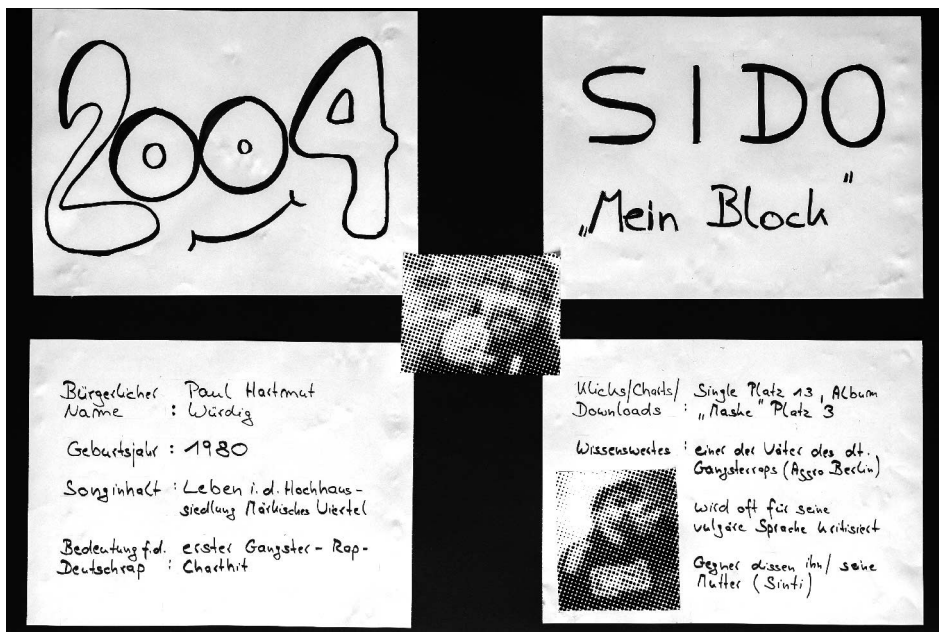 2004
SIDO
„Mein Block"
Bürgerlicher Paul Hartmut
Name : Würdig
Geburtsjahr : 1980
Songinhalt : Leben i. d. Hochhaus-
siedlung Märkisches Viertel
Bedeutung f. d. erster Gangster-Rap-
Deutschrap : Charthit
Klicks/Charts/ Single Platz 13, Album
Downloads : „Maske" Platz 3
Wissenswertes : einer der Väter des dt.
Gangsterraps (Aggro Berlin)
wird oft für seine
vulgäre Sprache kritisiert
Gegner dissen ihn/ seine
Mutter (Sinti)